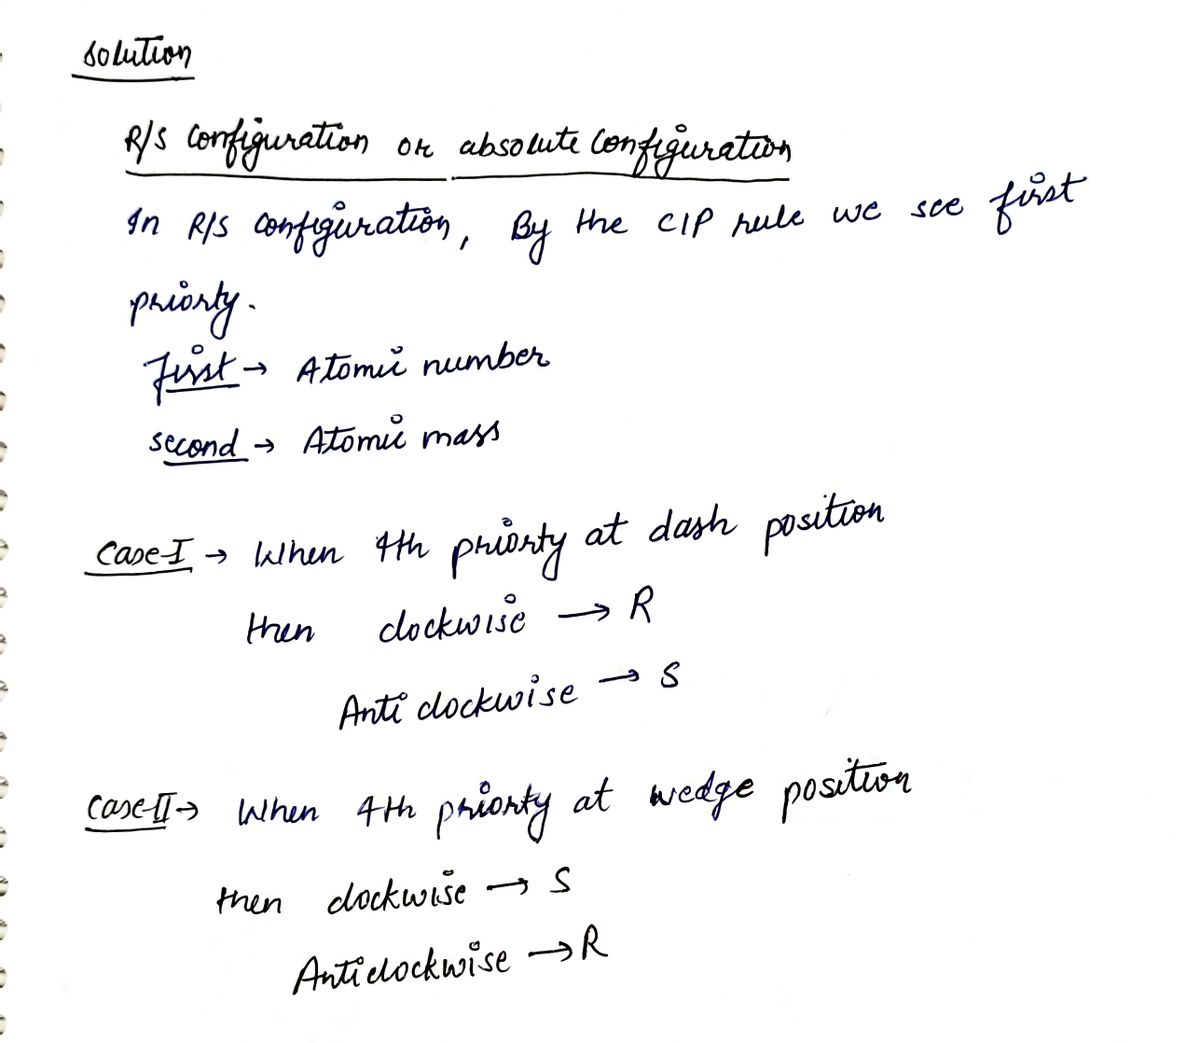 Solution
R/S Configuration or absolute Configuration
In R/S Configuration, By the CIP rule we see first
priorty.
First → Atomic number
second → Atomic mass
Case-I → When 4th priorty at dash position
then clockwise → R
Anti clockwise → S
Case-II → When 4th priorty at wedge position
then clockwise → S
Anticlockwise → R